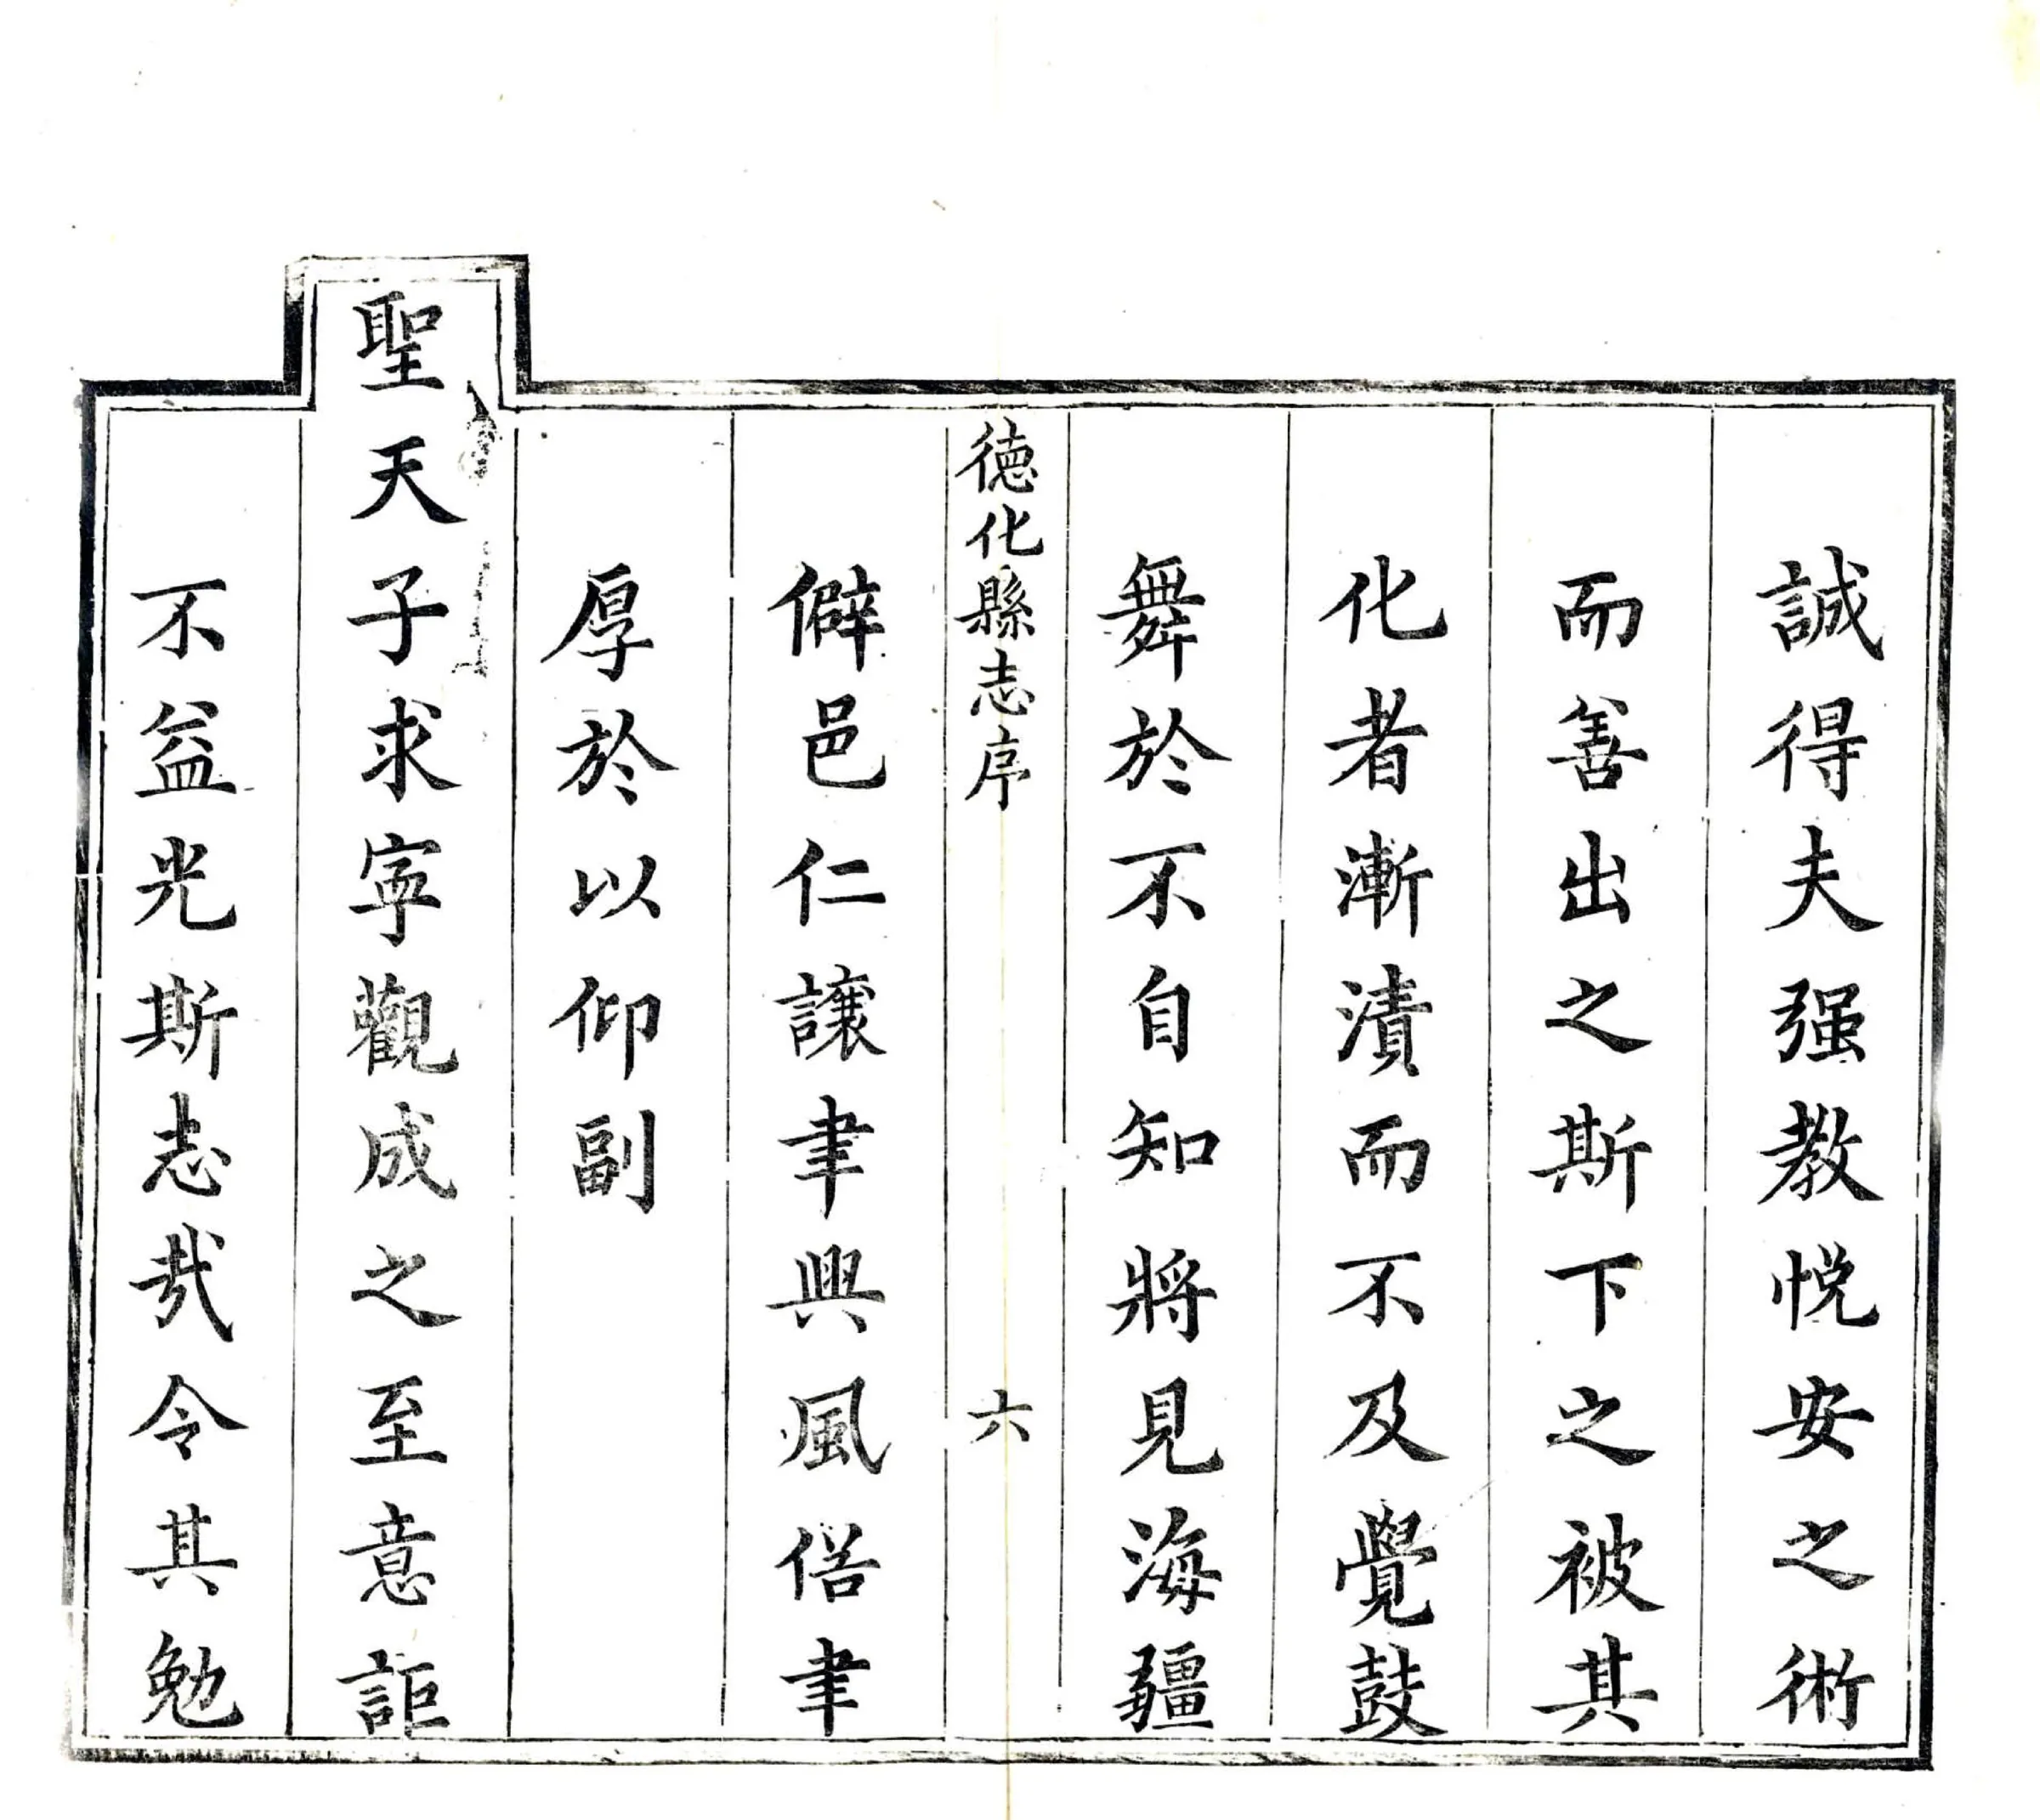 誠得夫强教悅安之術
而善出之斯下之被其
化者漸漬而不及覺鼓
舞於不自知將見海疆
德化縣志序
六
僻邑仁讓聿興風俗聿
厚於以仰副
聖天子求寧觀成之至意詎
不益光斯志哉令其勉